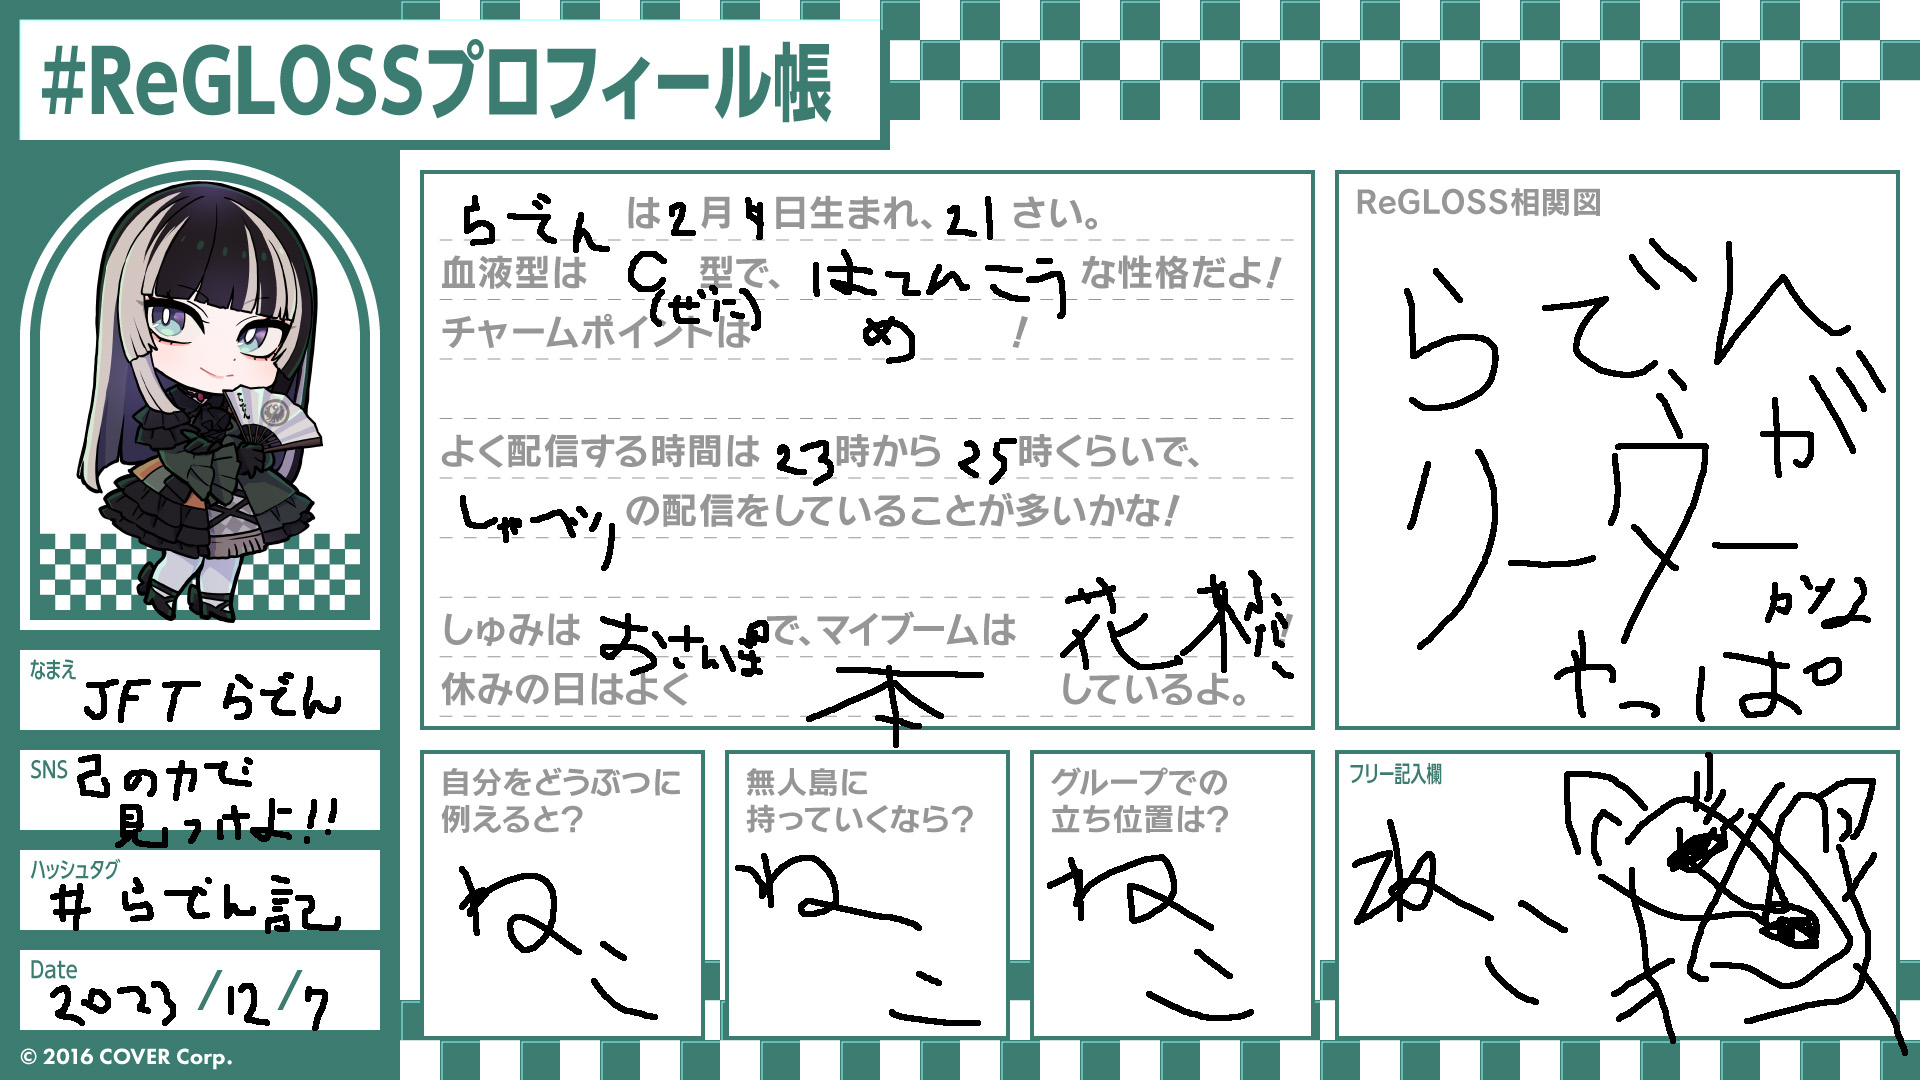 #ReGLOSSプロフィール帳
らでん
なまえ
JFT らでん
SNS
己の力で
見つけよ!!
ハッシュタグ
# らでん記
Date
2023/12/7
© 2016 COVER Corp.
らでんは2月4日生まれ、21さい。
血液型はC型で、はてんこうな性格だよ!
(ぜに)
チャームポイントはめ!
よく配信する時間は23時から25時くらいで、
しゃべりの配信をしていることが多いかな!
しゅみはおさんぽで、マイブームは花札!
休みの日はよく本しているよ。
ReGLOSS相関図
らでんが
リーダー
かな
やっぱ
自分をどうぶつに
例えると?
ねこ
無人島に
持っていくなら?
ねこ
グループでの
立ち位置は?
ねこ
フリー記入欄
ねこ